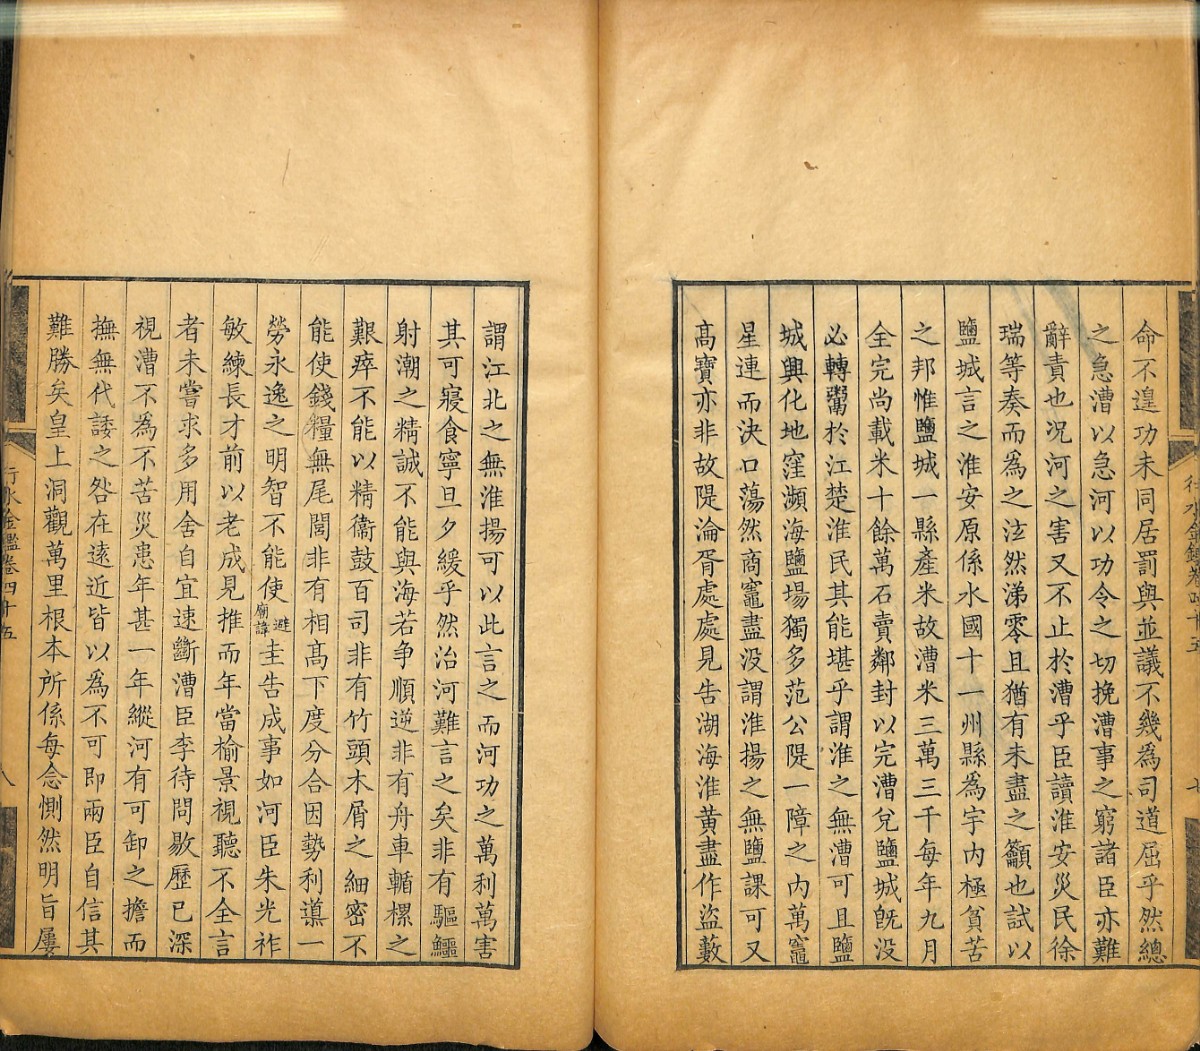 命不遑功未同居罰與並議不幾為司道屈乎然總
之急漕以急河以功令之切挽漕事之窮諸臣亦難
辭責也况河之害又不止於漕乎臣讀淮安災民徐
瑞等奏而為之泫然涕零且猶有未盡之籲也試以
鹽城言之淮安原係水國十一州縣為宇内極貧苦
之邦惟鹽城一縣產米故漕米三萬三千每年九月
全完尚載米十餘萬石賣鄰封以完漕兌鹽城旣没
必轉鬻於江楚淮民其能堪乎謂淮之無漕可且鹽
城興化地窪瀕海鹽場獨多范公隄一障之内萬竈
星連而決口蕩然商竈盡没謂淮揚之無鹽課可又
髙寶亦非故隄淪胥處處見告湖海淮黄盡作盜藪
行水金鑑卷四十五
七
謂江北之無淮揚可以此言之而河功之萬利萬害
其可寢食寧旦夕緩乎然治河難言之矣非有驅鱷
射潮之精誠不能與海若争順逆非有舟車輴樏之
艱瘁不能以精衞鼓百司非有竹頭木屑之細密不
能使錢糧無尾閭非有相髙下度分合因勢利導一
勞永逸之明智不能使避廟諱圭告成事如河臣朱光祚
敏練長才前以老成見推而年當榆景視聽不全言
者未嘗求多用舍自宜速斷漕臣李待問敭歷已深
視漕不為不苦災患年甚一年縱河有可卸之擔而
撫無代諉之咎在遠近皆以為不可即兩臣自信其
難勝矣皇上洞觀萬里根本所係每念惻然明旨屢
行水金鑑卷四十五
八